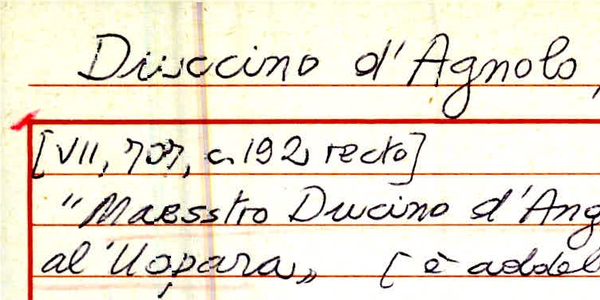 Duccino d'Agnolo,
[VII, 707, c. 192 recto]
"Maesstro Duccino d'Ang
al'Uopara„ [è addel